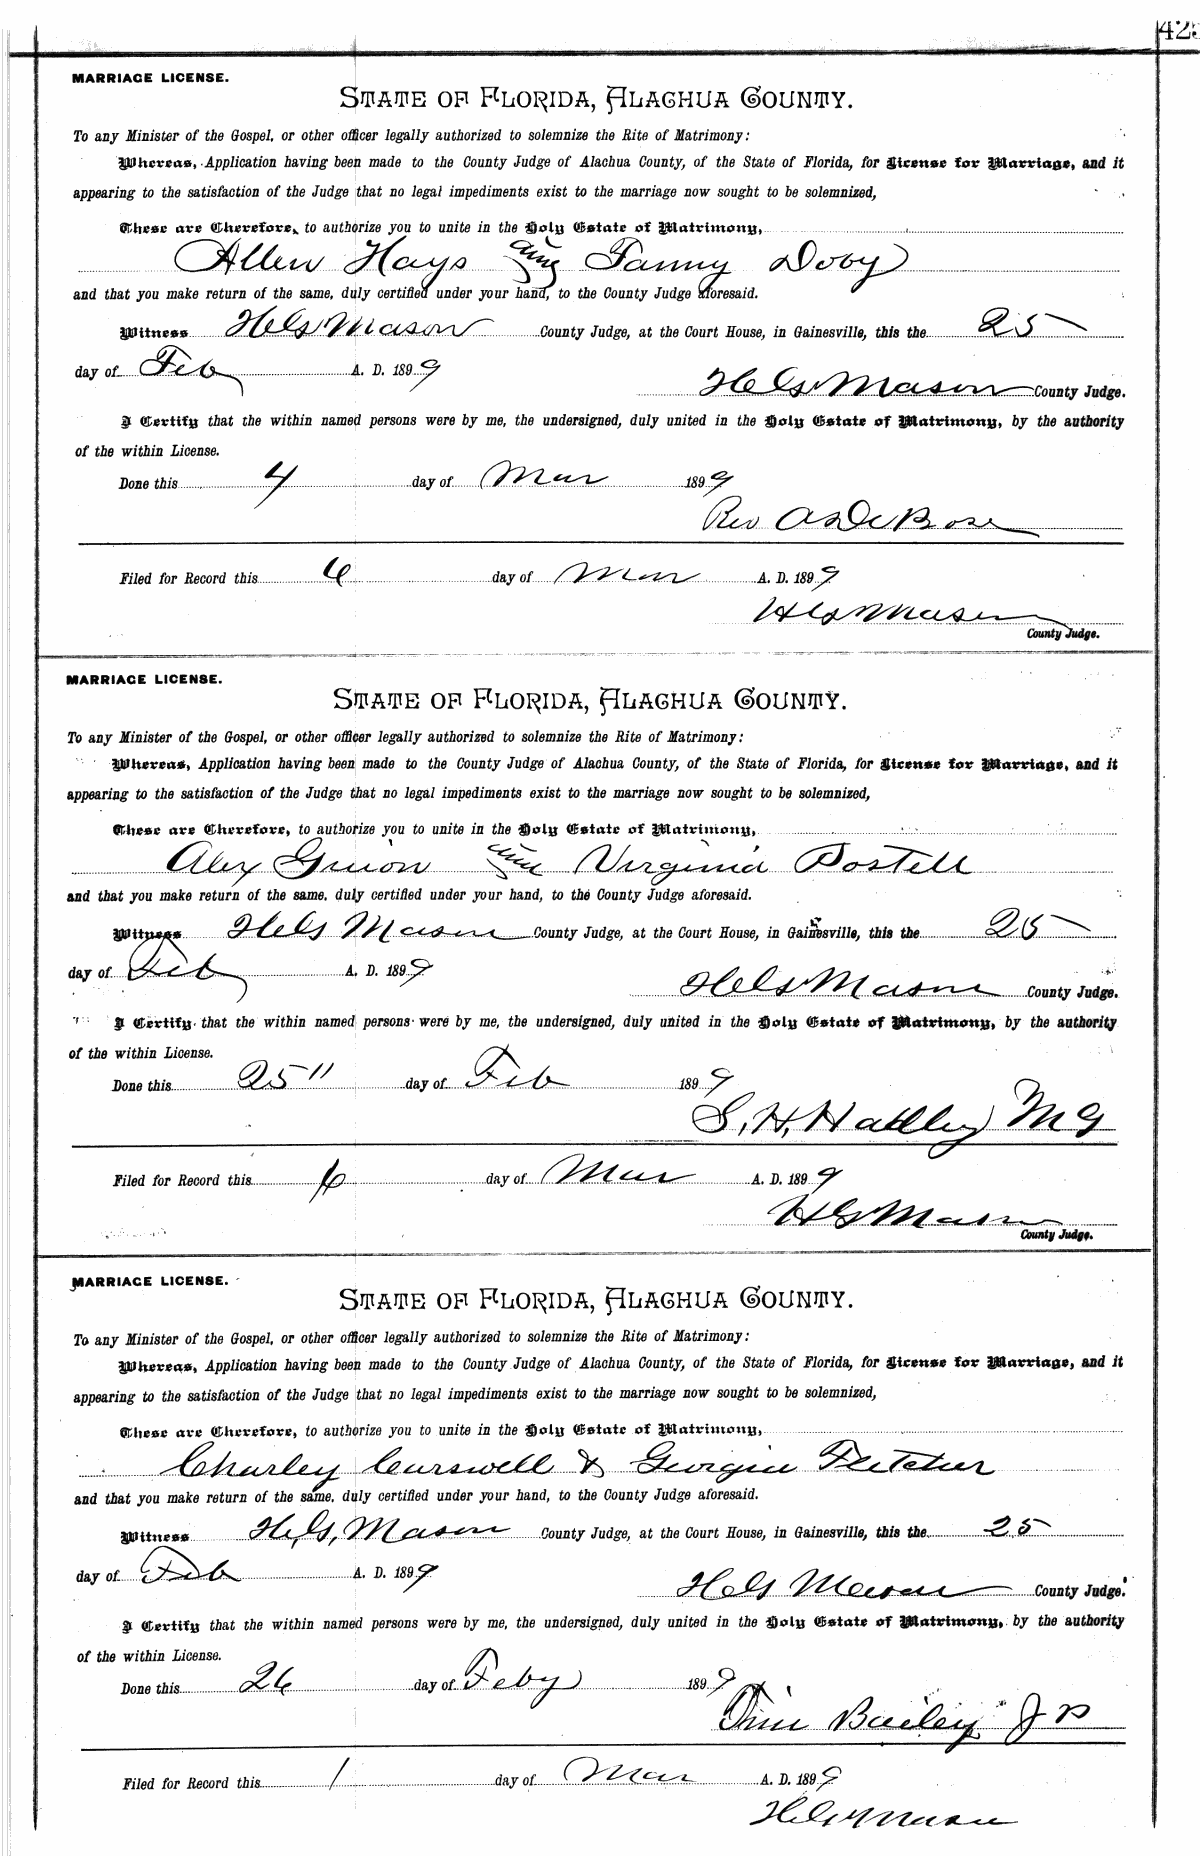 425
MARRIAGE LICENSE.
STATE OF FLORIDA, ALACHUA COUNTY.
To any Minister of the Gospel, or other officer legally authorized to solemnize the Rite of Matrimony:
Whereas, Application having been made to the County Judge of Alachua County, of the State of Florida, for License for Marriage, and it
appearing to the satisfaction of the Judge that no legal impediments exist to the marriage now sought to be solemnized,
These are Therefore, to authorize you to unite in the Holy Estate of Matrimony,
Allen Hays and Fanny Doby
and that you make return of the same, duly certified under your hand, to the County Judge aforesaid.
Witness H G Mason County Judge, at the Court House, in Gainesville, this the 25
day of Feb A. D. 1899
H G Mason County Judge.
I Certify that the within named persons were by me, the undersigned, duly united in the Holy Estate of Matrimony, by the authority
of the within License.
Done this 4 day of Mar 1899
Rev A S De Bose
Filed for Record this 6 day of Mar A. D. 1899
H G Mason
County Judge.
MARRIAGE LICENSE.
STATE OF FLORIDA, ALACHUA COUNTY.
To any Minister of the Gospel, or other officer legally authorized to solemnize the Rite of Matrimony:
Whereas, Application having been made to the County Judge of Alachua County, of the State of Florida, for License for Marriage, and it
appearing to the satisfaction of the Judge that no legal impediments exist to the marriage now sought to be solemnized,
These are Therefore, to authorize you to unite in the Holy Estate of Matrimony,
Alex and Virginia Postell
and that you make return of the same, duly certified under your hand, to the County Judge aforesaid.
Witness H G Mason County Judge, at the Court House, in Gainesville, this the 25
day of Feb A. D. 1899
H G Mason County Judge.
I Certify that the within named persons were by me, the undersigned, duly united in the Holy Estate of Matrimony, by the authority
of the within License.
Done this 25" day of Feb 1899
S. H. Hadley M G
Filed for Record this 6 day of Mar A. D. 1899
H G Mason
County Judge.
MARRIAGE LICENSE.
STATE OF FLORIDA, ALACHUA COUNTY.
To any Minister of the Gospel, or other officer legally authorized to solemnize the Rite of Matrimony:
Whereas, Application having been made to the County Judge of Alachua County, of the State of Florida, for License for Marriage, and it
appearing to the satisfaction of the Judge that no legal impediments exist to the marriage now sought to be solemnized,
These are Therefore, to authorize you to unite in the Holy Estate of Matrimony,
Charley Curswell & Georgia Fletcher
and that you make return of the same, duly certified under your hand, to the County Judge aforesaid.
Witness H. G. Mason County Judge, at the Court House, in Gainesville, this the 25
day of Feb A. D. 1899
H G Mason County Judge.
I Certify that the within named persons were by me, the undersigned, duly united in the Holy Estate of Matrimony, by the authority
of the within License.
Done this 26 day of Feby 1899
Tim Bailey J P
Filed for Record this 1 day of Mar A. D. 1899
H G Mason